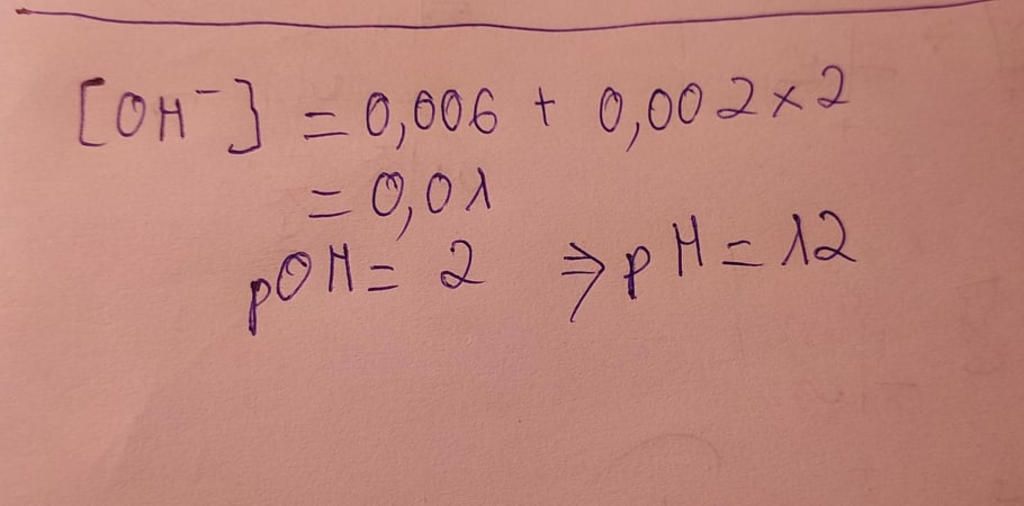 [OH⁻] = 0,006 + 0,002 x 2
= 0,01
pOH = 2 ⇒ pH = 12